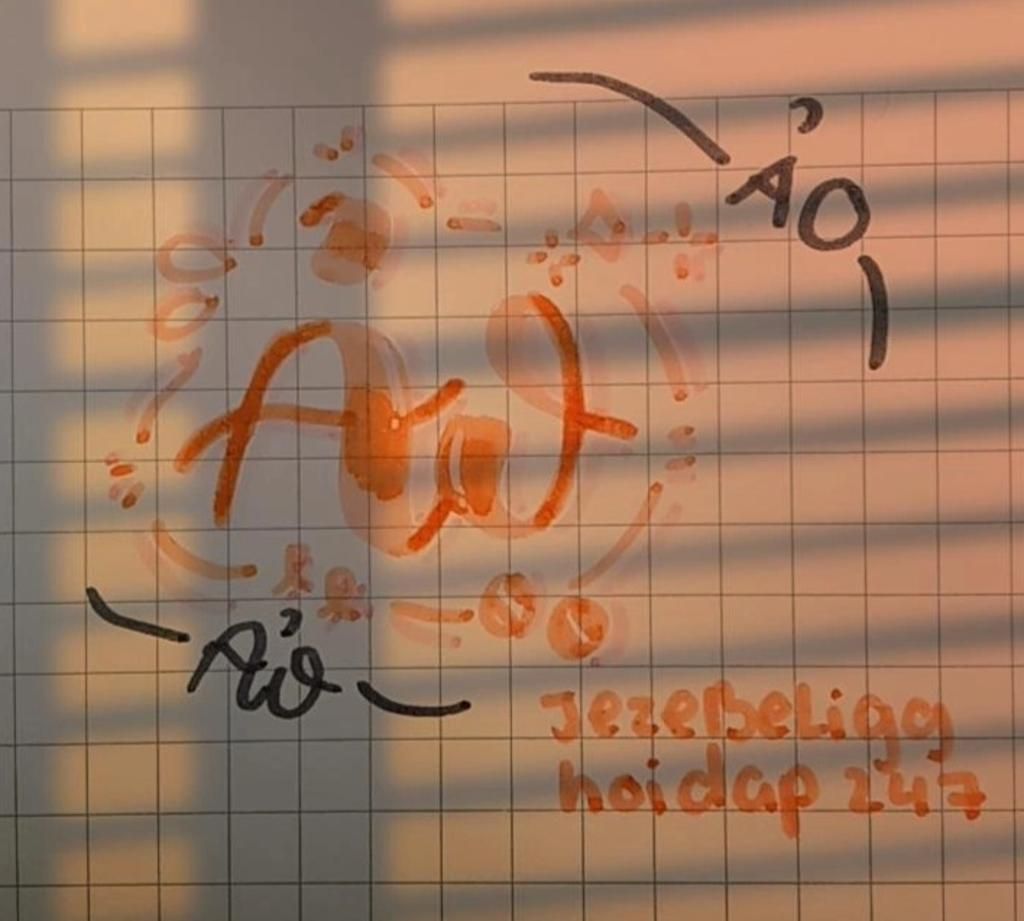 ẢO
Ảo
Ảo
JezeBeLigg
hoidap 247